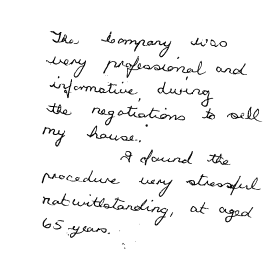 The company was
very professional and
informative during
the negotiations to sell
my house.
I found the
procedure very stressful
notwithstanding, at aged
65 years.